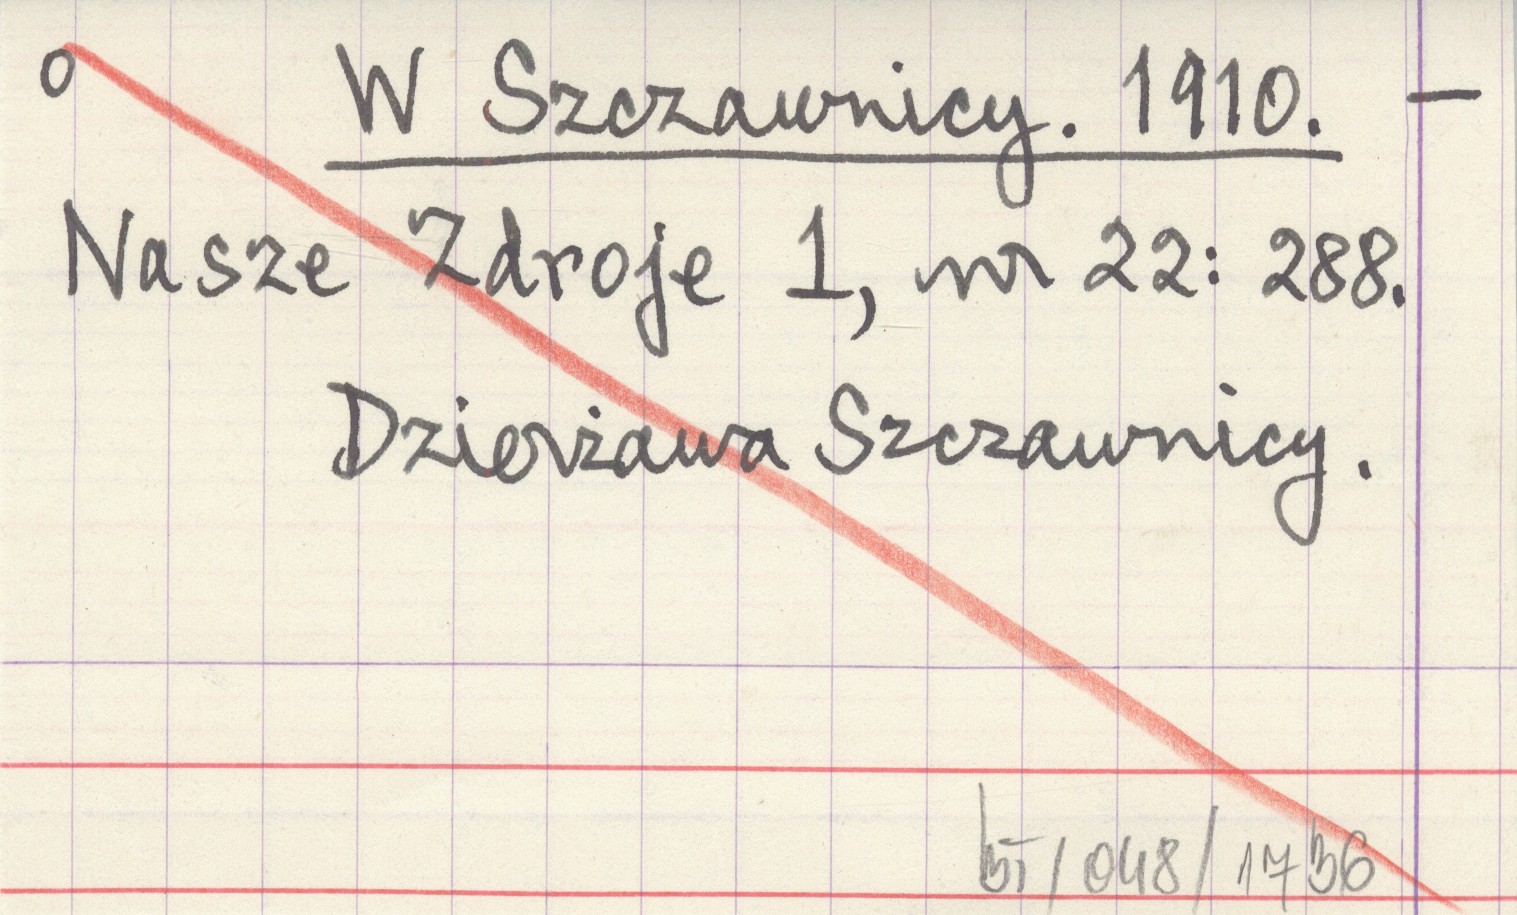 o W Szczawnicy. 1910. —
Nasze Zdroje 1, nr 22: 288.
Dzierżawa Szczawnicy.
/048/1736